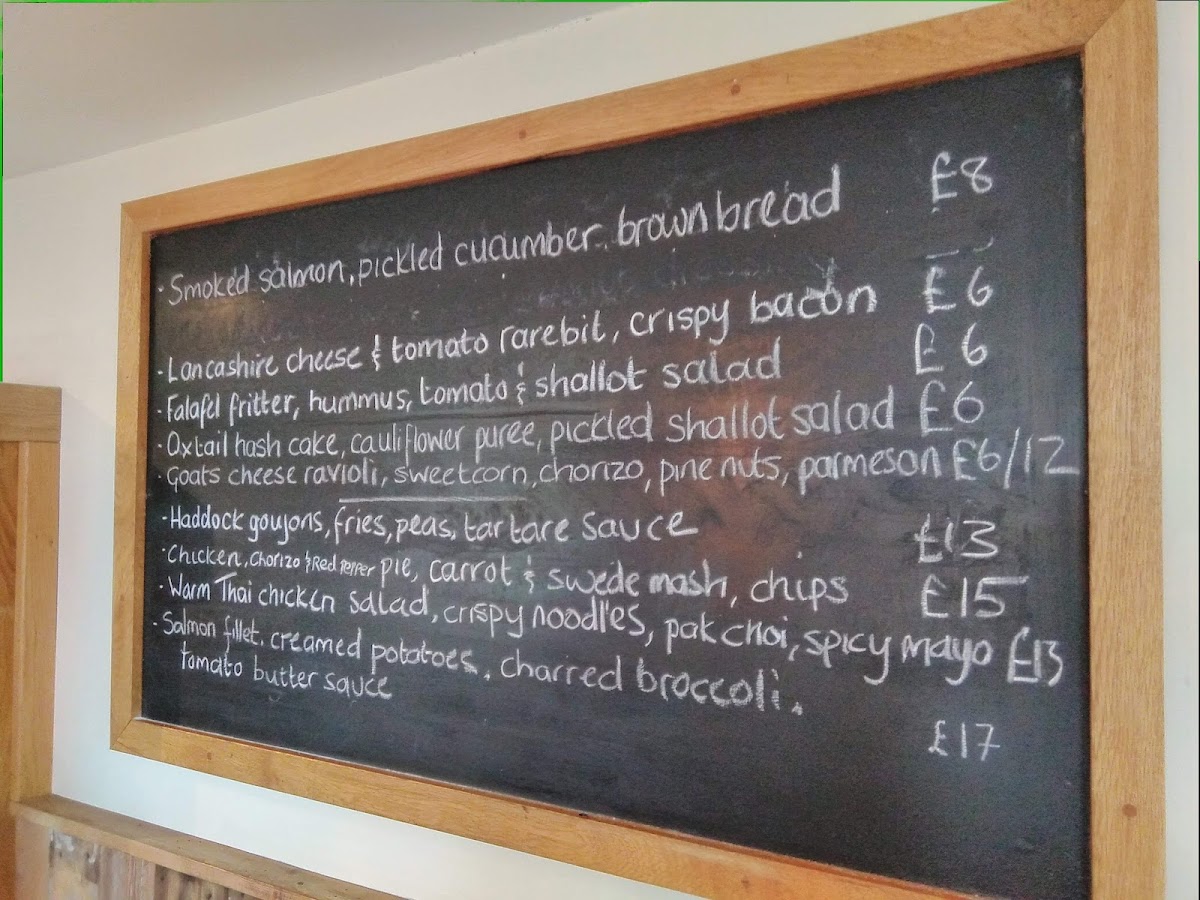 · Smoked salmon, pickled cucumber. brown bread £8
· Lancashire cheese & tomato rarebit, crispy bacon £6
· Falafel fritter, hummus, tomato & shallot salad £6
· Oxtail hash cake, cauliflower puree, pickled shallot salad £6
· Goats cheese ravioli, sweetcorn, chorizo, pine nuts, parmeson £6/12
· Haddock goujons, fries, peas, tartare sauce £13
· Chicken, chorizo & Red pepper pie, carrot & swede mash, chips £15
· Warm Thai chicken salad, crispy noodles, pak choi, spicy mayo £13
· Salmon fillet, creamed potatoes, charred broccoli,
tomato butter sauce £17